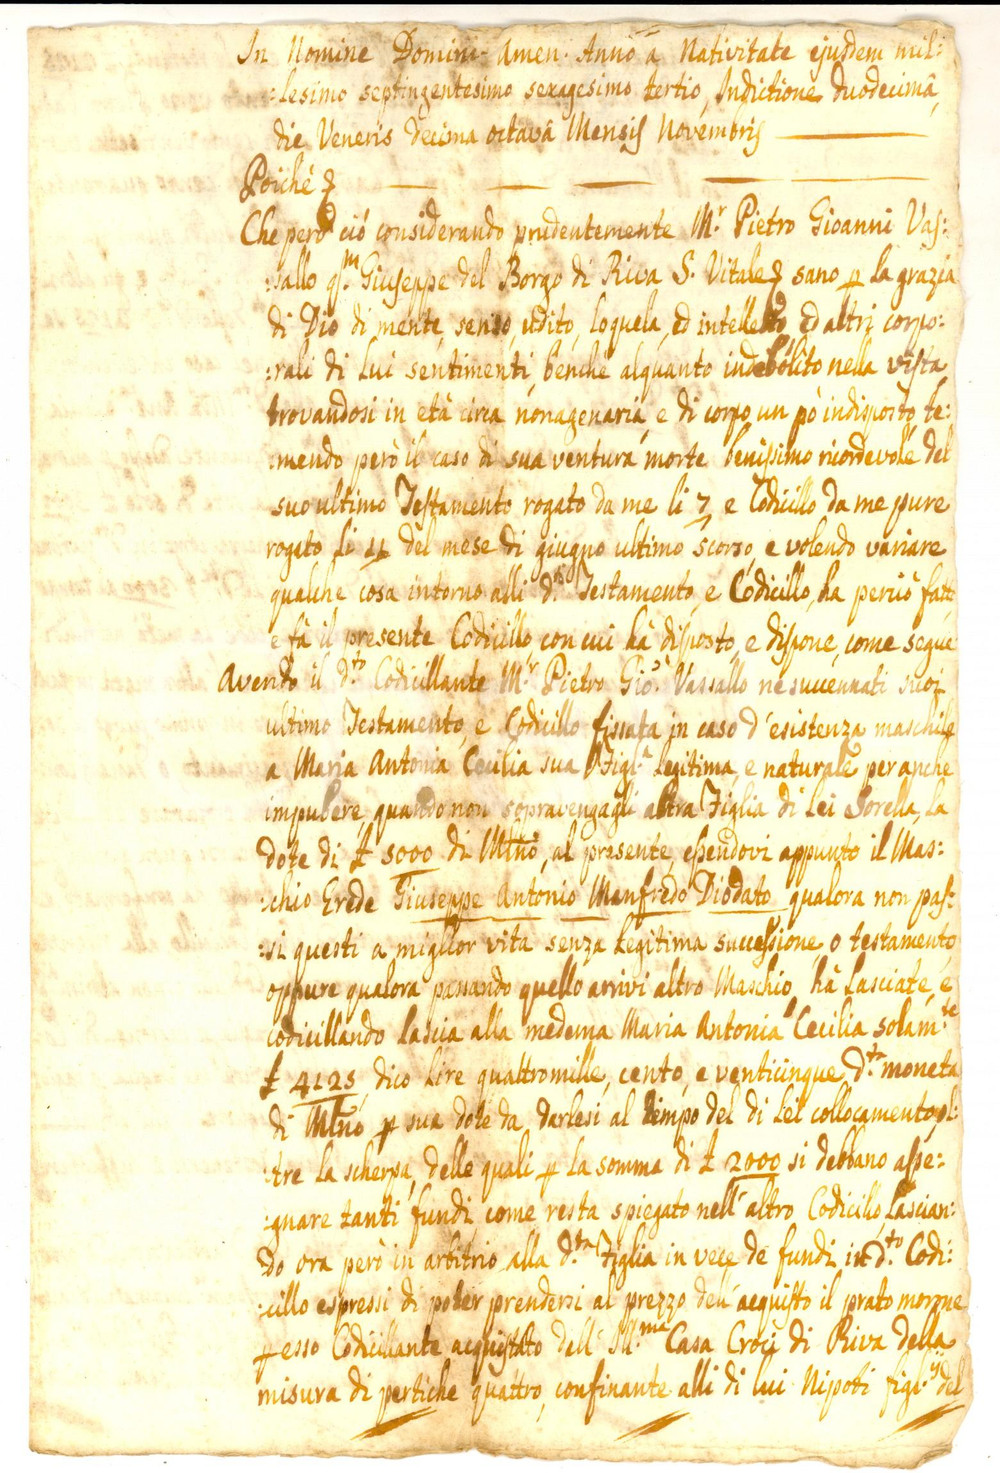 In Nomine Domini Amen. Anno à Nativitate ejusdem mil:
:lesimo septingentesimo sexagesimo tertio, Indictione duodecimâ,
die Veneris decima octavâ Mensis Novembris
Poichè
Che però ciò considerando prudentemente M.r Pietro Gioanni Vas:
:sallo q.m Giuseppe del Borgo di Riva S. Vitale sano p la grazia
di Dio di mente, senso, udito, loquela, ed intelletto, ed altri corpo:
:rali di Lui sentimenti, benchè alquanto indebolito nella vista
trovandosi in età circa nonagenaria, e di corpo un pò indisposto, te:
:mendo però il caso di sua ventura morte benissimo ricordevole del
suo ultimo Testamento rogato da me li 7, e Codicillo da me pure
rogato li 11 del mese di giugno ultimo scorso, e volendo variare
qualche cosa intorno alli d.i Testamento, e Codicillo, ha perciò fatto
e fà il presente Codicillo con cui hà disposto, e dispone, come segue
Avendo il d.to Codicillante M.r Pietro Gio. Vassallo ne succennati suoi
ultimo Testamento, e Codicillo fissata in caso d'esistenza maschile
a Maria Antonia Cecilia sua Figl.a legitima, e naturale per anche
impubere, quando non sopravengagli altra Figlia di Lei Sorella, la
dote di £ 5000 di Mtno, al presente essendovi appunto il Mas:
:chio Erede Giuseppe Antonio Manfredo Diodato qualora non pas:
:si questi a miglior vita senza legitima successione, o testamento
oppure qualora passando quello arrivi altro Maschio, hà lasciate, e
codicillando lascia alla medema Maria Antonia Cecilia solam.te
£ 4125, dico Lire quattromille, cento, e venticinque d.ta moneta
di Mtno p sua dote da darlesi al tempo del di Lei collocamento, ol:
:tre la scherpa, delle quali p la somma di £ 2000 si debbano asse:
:gnare tanti fundi come resta spiegato nell'altro Codicillo, lascian:
do ora però in arbitrio alla d.ta Figlia in vece de fundi in d.to Codi:
:cillo espressi di poter prendersi al prezzo dell'acquisto il prato
p esso Codicillante acquistato dell' Ill.ma Casa Croci di Riva della
misura di pertiche quattro, confinante alli di lui Nipoti figl.j del